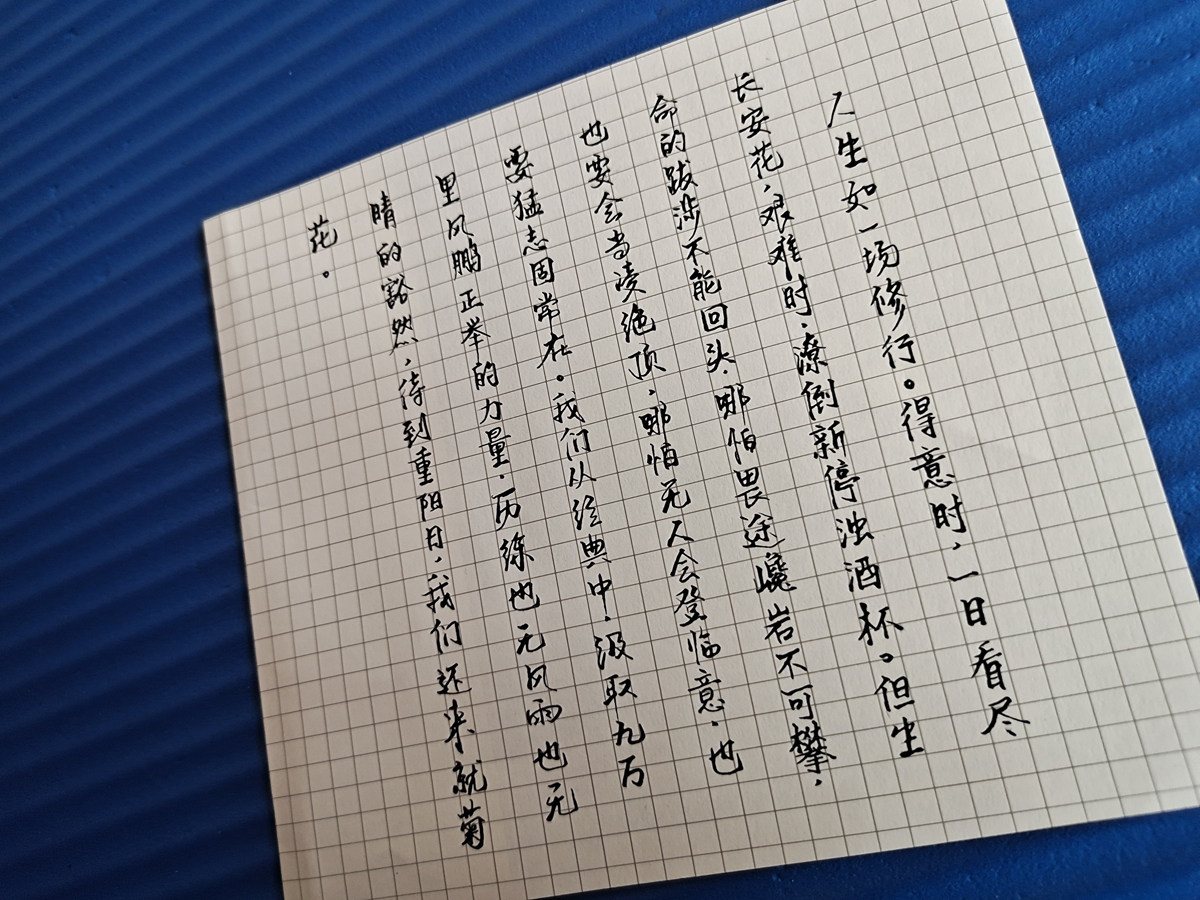 人生如一场修行。得意时，一日看尽
长安花，艰难时，潦倒新停浊酒杯。但生
命的跋涉不能回头，哪怕畏途巉岩不可攀，
也要会当凌绝顶，哪怕无人会登临意，也
要猛志固常在。我们从经典中，汲取九万
里风鹏正举的力量，历练也无风雨也无
晴的豁然，待到重阳日，我们还来就菊
花。